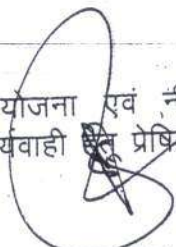 योजना एवं
र्यवाही हेतू प्रेषि